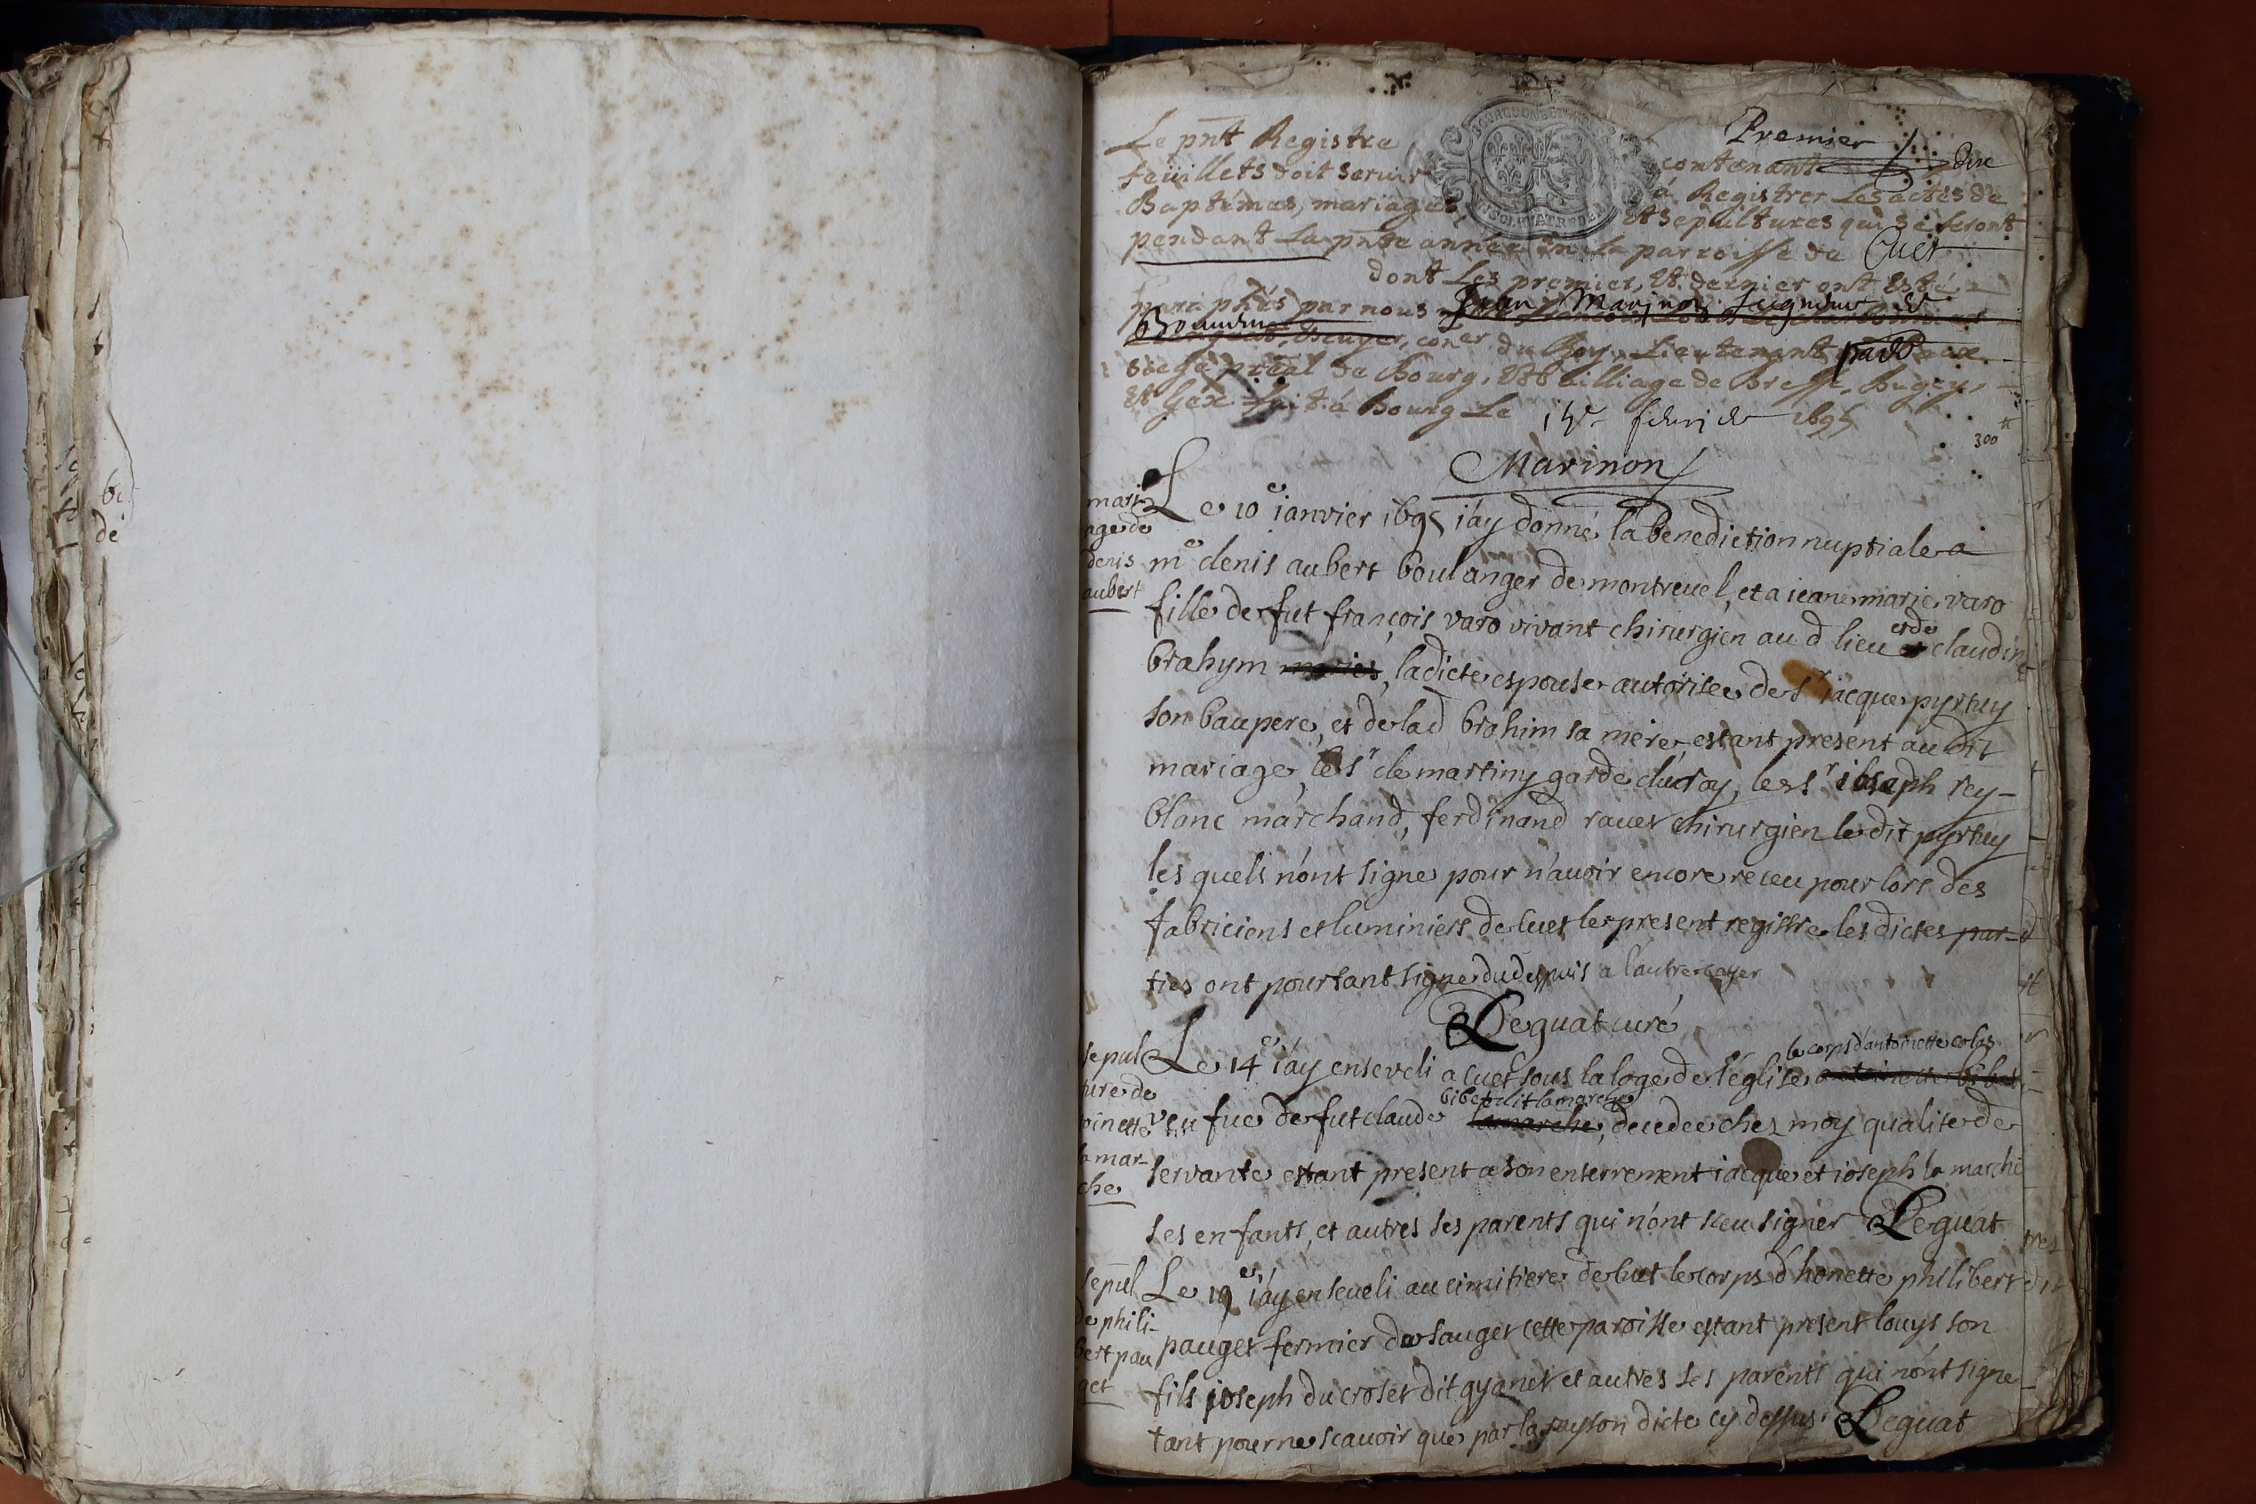 Premier
Le pnt Registre contenant dix
feüillets doit servir à Registrer Les actes de
Baptémes, mariages Et sepultures qui se feront
pendant La pnte année En la parroisse de Cuet
dont Les premier, Et dernier ont Esté
paraphés par nous Jean Marinon seigneur de
Escuyer, coner du Roy, Lieutenant part
siege pñal de Bourg, Et Bailliage de Bresse, Bugey,
Et Gex. fait à Bourg Le 15e 1695
300
Marinon
mari-
age de
denis
aubert
Le 10e ianvier 1695 i'ay donné la benediction nuptiale a
me denis aubert boulanger de montreuel, et a ieane marie varo
fille de fut françois varo vivant chirurgien au d lieu et de claudine
brahym maries, ladicte espouse autorisee de sr iacque pyrtuy
son baupere, et de lad brahim sa mere, estant present audit
mariage, le sr de martiny garde du roy, le sr ioseph rey-
blanc marchand, ferdinand rauet chirurgien le dit pyrtuy
les quels n'ont signe pour n'auoir encore receu pour lors des
fabriciens et luminiers de cuet le present registre les dictes par-
ties ont pourtant signe du despuis a l'autre cayer
Deguat curé
sepul
ture de
toinette
la mar-
che
le corps d'antoinette colas
Le 14e i'ay enseveli a cuet sous la loge de l'église antoinette bibet
bibet dit lamarche
veufue de fut claude lamarche, decedee chez moy qualite de
servante estant present a son enterrement iacque et ioseph la marche
ses enfants, et autres ses parents qui n'ont sceu signer Deguat
sepul
de phili-
bert pau
get
Le 19e i'ay enseueli au cimitiere de cuet le corps d'honette philibert
pauget fermier de sauget cette paroisse estant present louys son
fils ioseph du croset dit gyanet et autres ses parents qui n'ont signe
tant pour ne scauoir que par la rayson dicte cy dessus Deguat